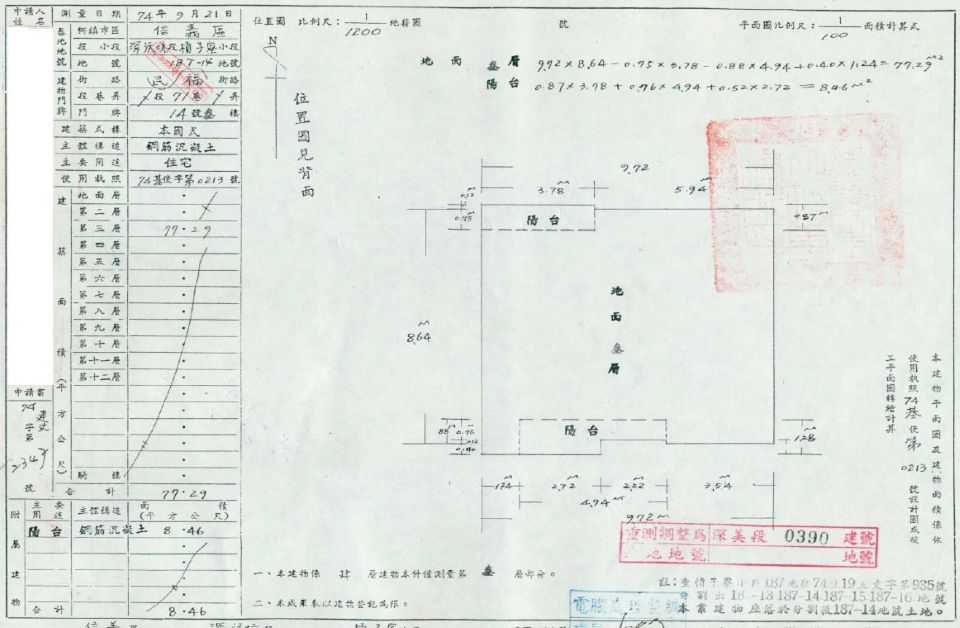 申請人姓名
測量日期 74年9月21日
基地地號
鄉鎮市區 信義區
段小段 深沃塊段槓子寮小段
地號 187-14地號
建物門牌
街路 民福 街路
段巷弄 段71巷 弄
門牌 14號叁樓
建築式樣 本國式
主體構造 鋼筋混凝土
主要用途 住宅
使用執照 74基使字第0213號
建築面積(平方公尺)
地面層 ·
第二層 ·
第三層 77·29
第四層 ·
第五層 ·
第六層 ·
第七層 ·
第八層 ·
第九層 ·
第十層 ·
第十一層 ·
第十二層 ·
騎樓 ·
合計 77·29
申請書
74
字第
2343
號
附屬建物
主要用途 主體構造 面積(平方公尺)
陽台 鋼筋混凝土 8·46
合計 8·46
位置圖 比例尺:1/1200 地接圖
號
平面圖比例尺:1/100 面積計算式
N
位置圖見背面
地面叁層 9.72×8.64-0.75×3.78-0.88×4.94+0.40×1.24=77.29m²
陽台 0.87×3.78+0.96×4.94+0.52×2.72=8.46m²
9.72
3.78m
5.94m
0.12
0.75
陽台
.87m
地面叁層
8.64m
88
0.96
0.12
0.40
陽台
1.28
1.24
2.72
2.22
3.54
4.94m
9.72m
本建物平面圖及建物面積係依
使用執照74基使第0213號設計圖或竣
工平面圖轉繪計算
重測調整為深美段 0390 建號
地地號 地號
一、本建物係 肆 層建物本件僅測量第 叁 層部分。
二、本成果表以建物登記為限。
註:查槓子寮小段187地號74.9.19土丈字第935號
分割出18.-13.187-14.187-15.187-16.地號
本案建物座落於分割後187-14地號土地。